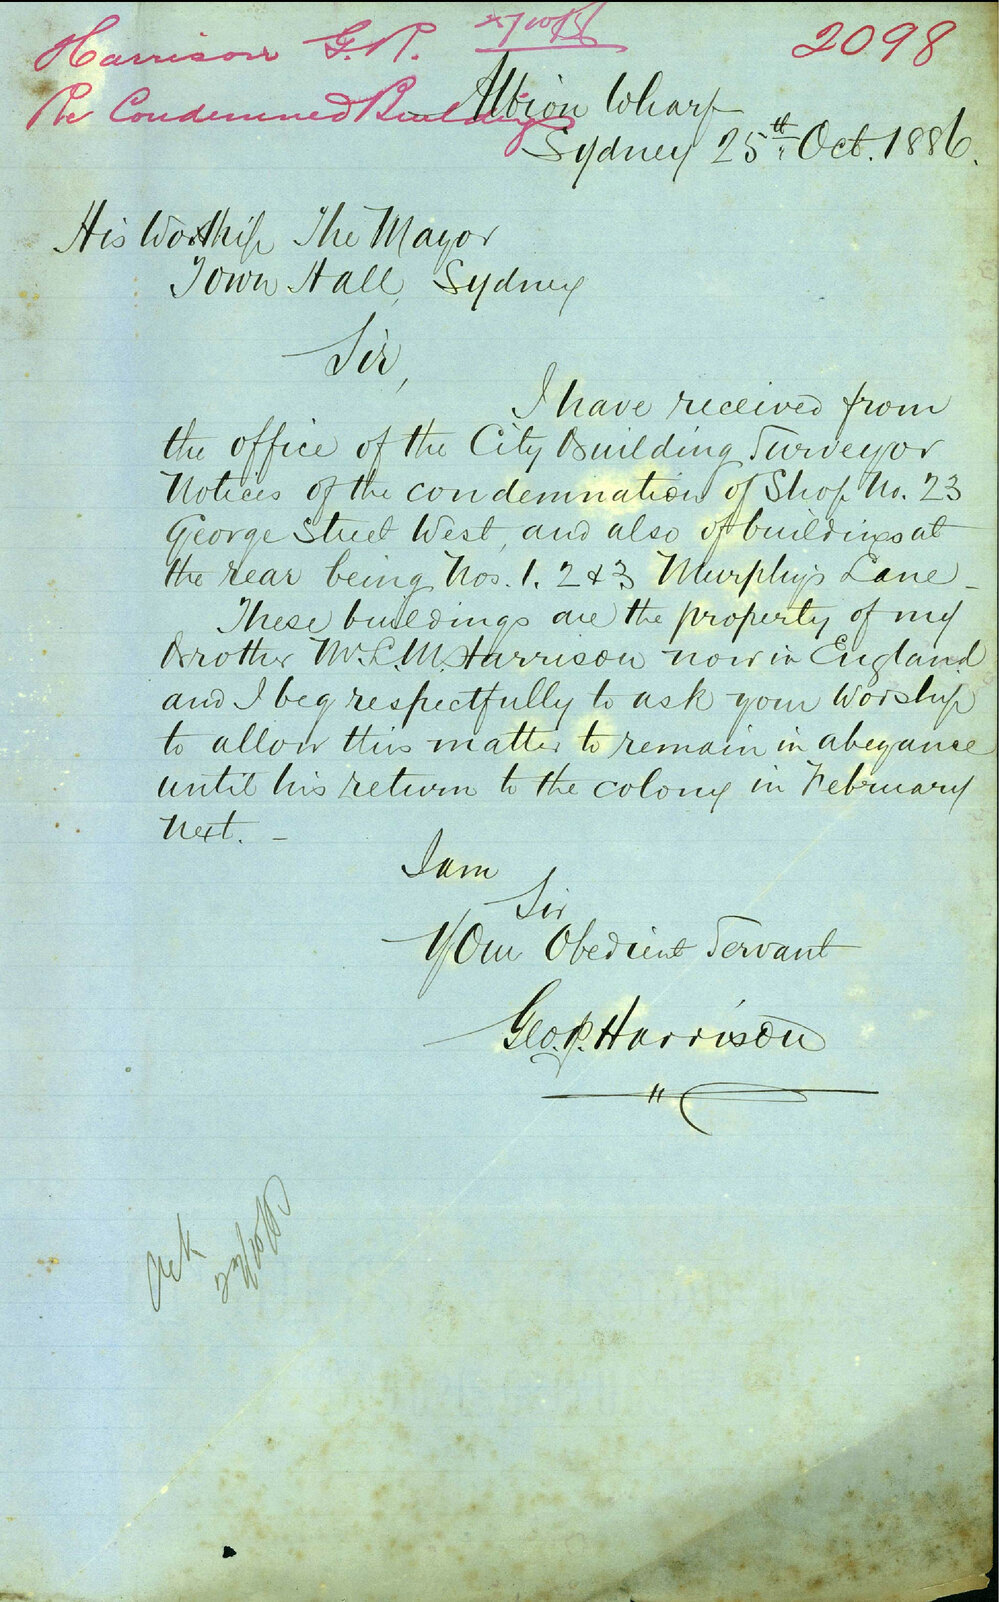 Harrison G.R.
2098
Re Condemned Buildings
Albion Wharf
Sydney 25th Oct. 1886.
His Worship The Mayor
Town Hall, Sydney
Sir,
I have received from
the office of the City Building Surveyor
Notices of the condemnation of Shop No. 23
George Street West, and also of buildings at
the rear being Nos. 1. 2 & 3 Murphy's Lane_
These buildings are the property of my
Brother Mr. L. M. Harrison now in England
and I beg respectfully to ask your Worship
to allow this matter to remain in abeyance
until his return to the colony in February
next. _
I am
Sir
Your Obedient Servant
Geo. R. Harrison
Ack